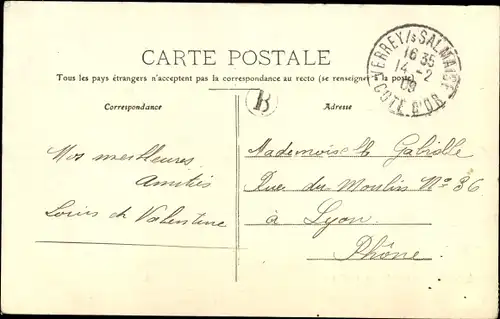 CARTE POSTALE
Tous les pays étrangers n'acceptent pas la correspondance au recto (se renseigner à la poste)
VERREY/s SALMAISE
16 35
14-2
09
COTE D'OR
B
Correspondance
Adresse
Nos meilleures
Amitiés
Louis et Valentine
Mademoiselle Gabielle
Rue du Moulin No 36
à Lyon
Rhône